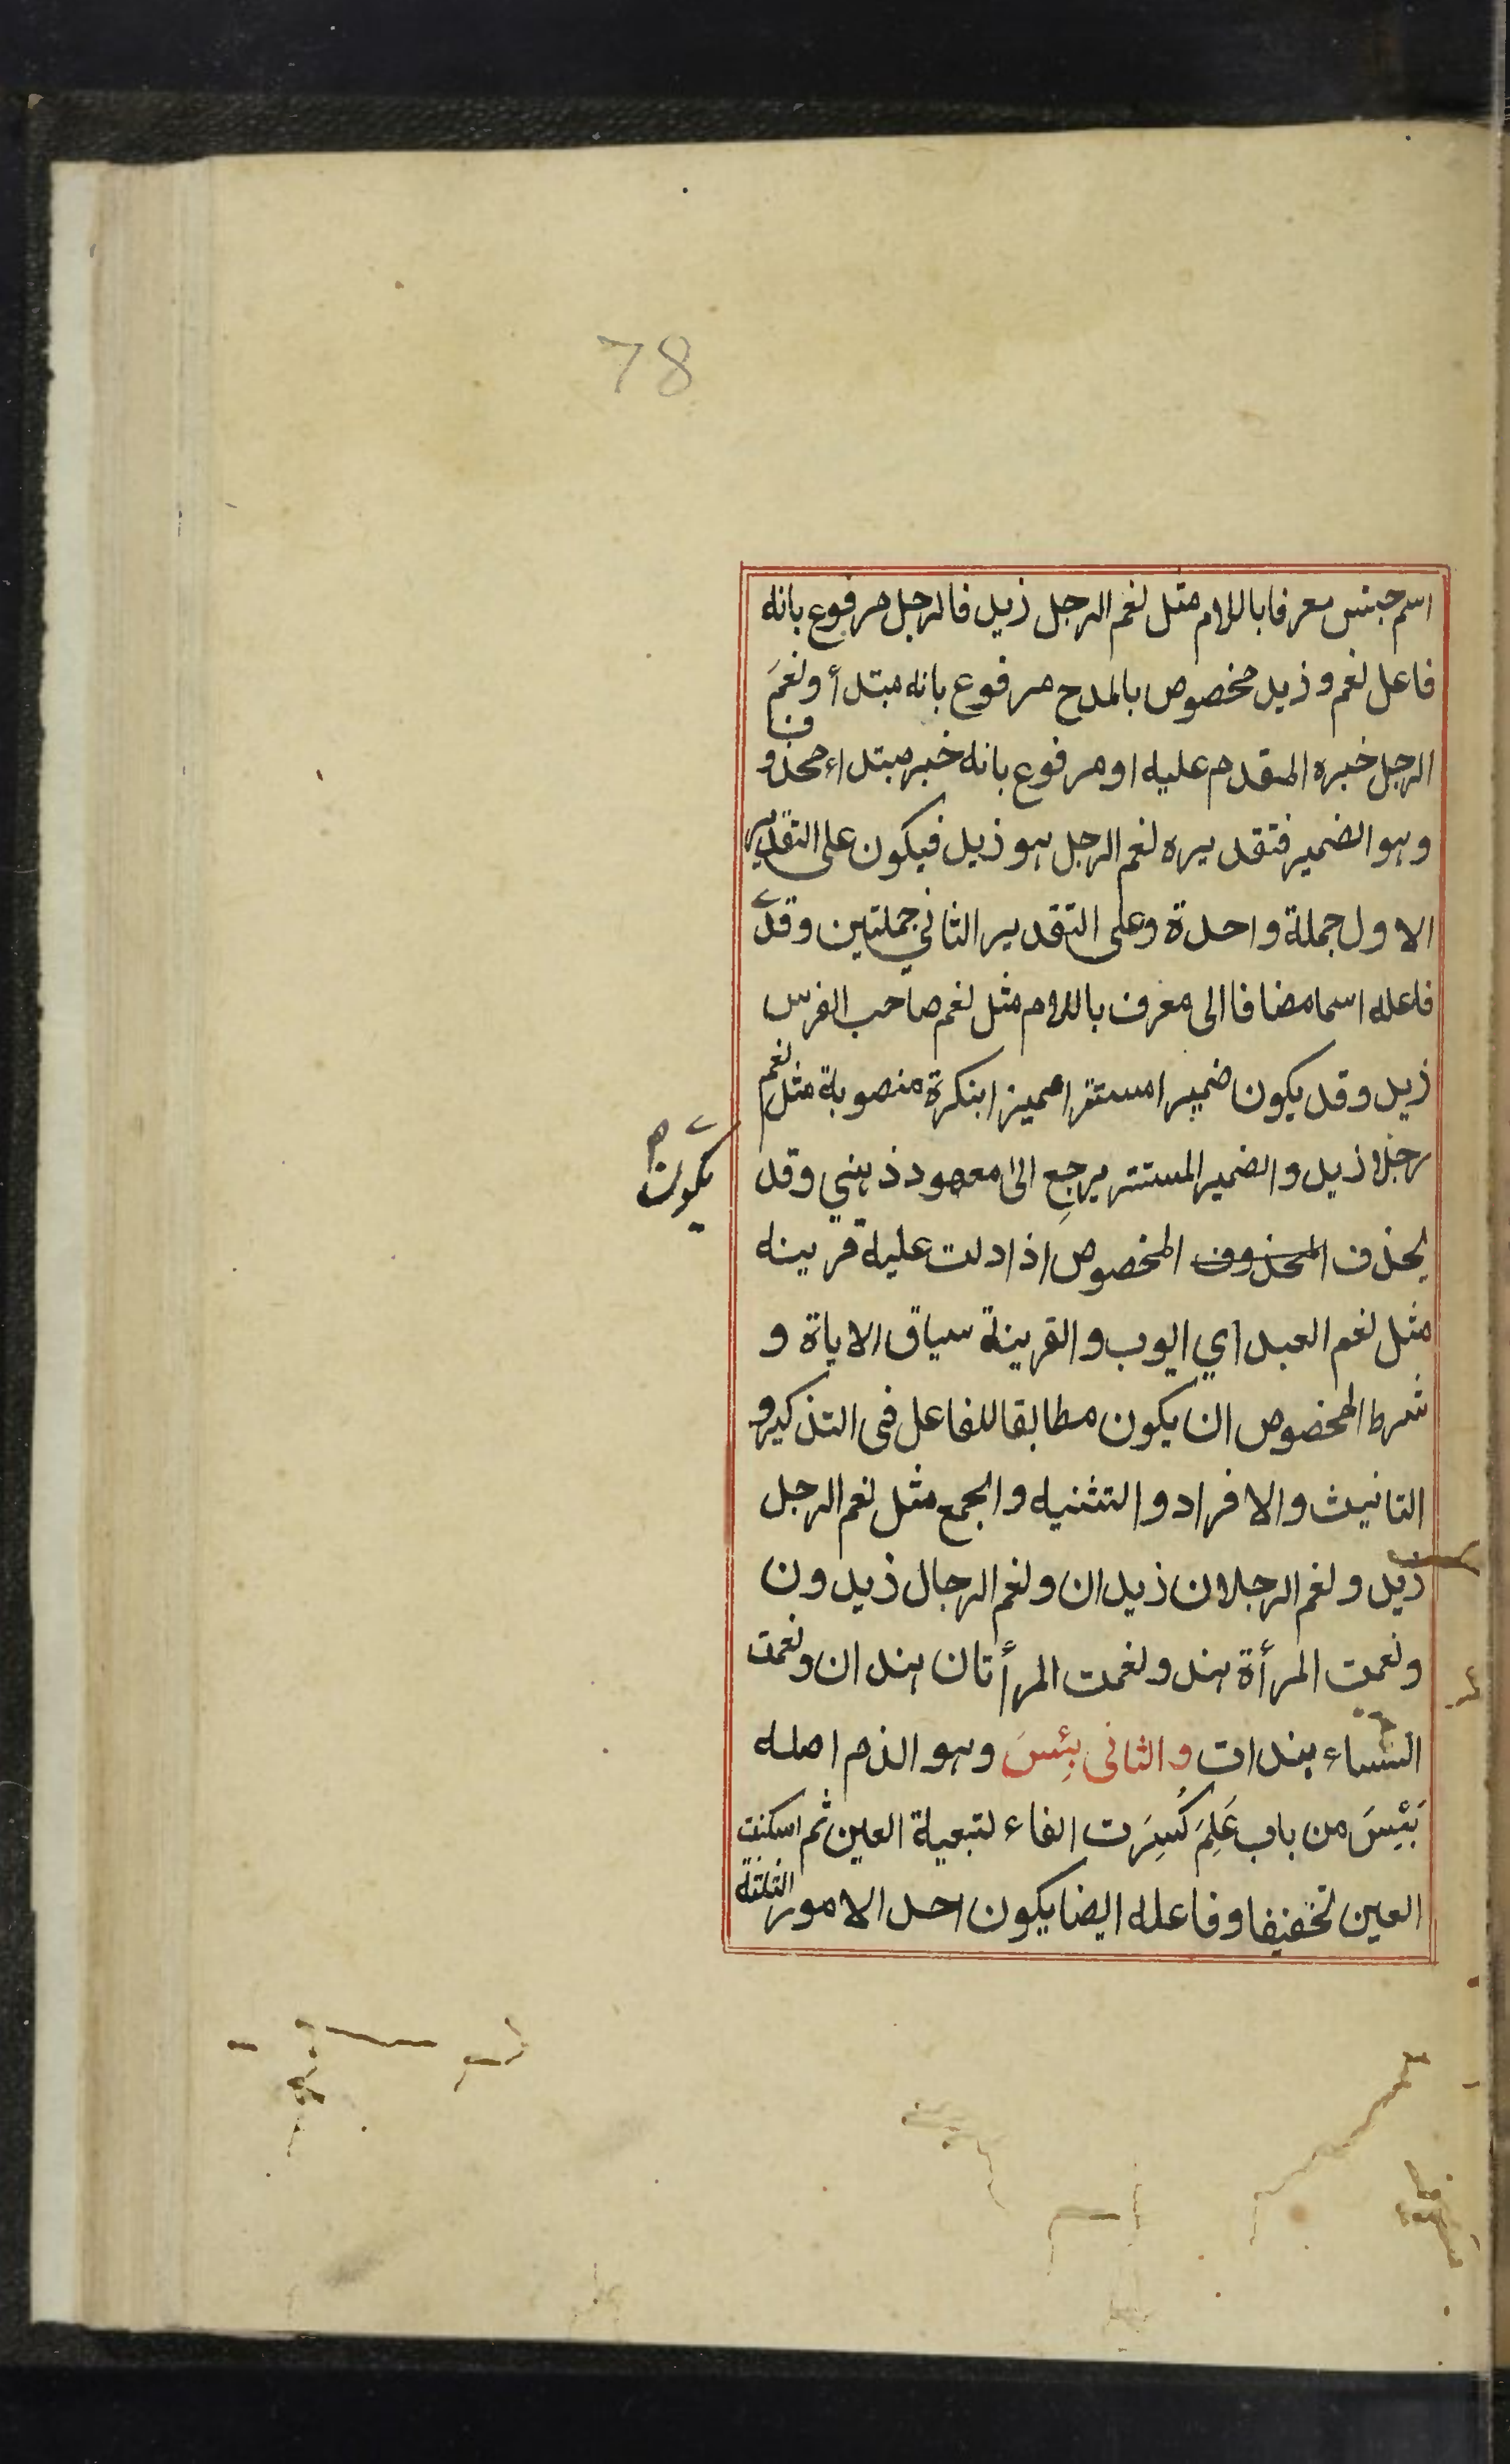 78
اسم جنس معرفا باللام مثل نعم الرجل زيد فالرجل مرفوع بانه
فاعل نعم و زيد مخصوص بالمدح مرفوع بانه مبتدأ و نعمَ
الرجل خبره المقدم عليه او مرفوع بانه خبر مبتداء محذوف
وهو الضمير فتقديره نعم الرجل هو زيد فيكون على التقدير
الاول جملة واحدة وعلى التقدير الثاني جملتين وقد
يكون
فاعله اسما مضافا الى معرف باللام مثل نعم صاحب الفرس
زيد وقد يكون ضميرا مستترا مميزا بنكرة منصوبة مثل نعم
رجلا زيد والضمير المستتر يرجع الى معهود ذهني وقد
يحذف المحذوف المخصوص اذا دلت عليه قرينه
مثل نعم العبد اي ايوب والقرينة سياق الاياة و
شرط المخصوص ان يكون مطابقا للفاعل فى التذكير و
التانيث والافراد والتثنيه والجمع مثل نعم الرجل
زيد و نعم الرجلان زيدان و نعم الرجال زيدون
ونعمت المرأة هند و نعمت المرأتان هندان ونعمت
النساء هندات والثانى بِئسَ وهو الذم اصله
بَئِسَ من باب عَلِمَ كُسِرَت الفاء لتبعية العين ثم اسكنت
العين تخفيفا وفاعله ايضا يكون احد الامور الثلثة